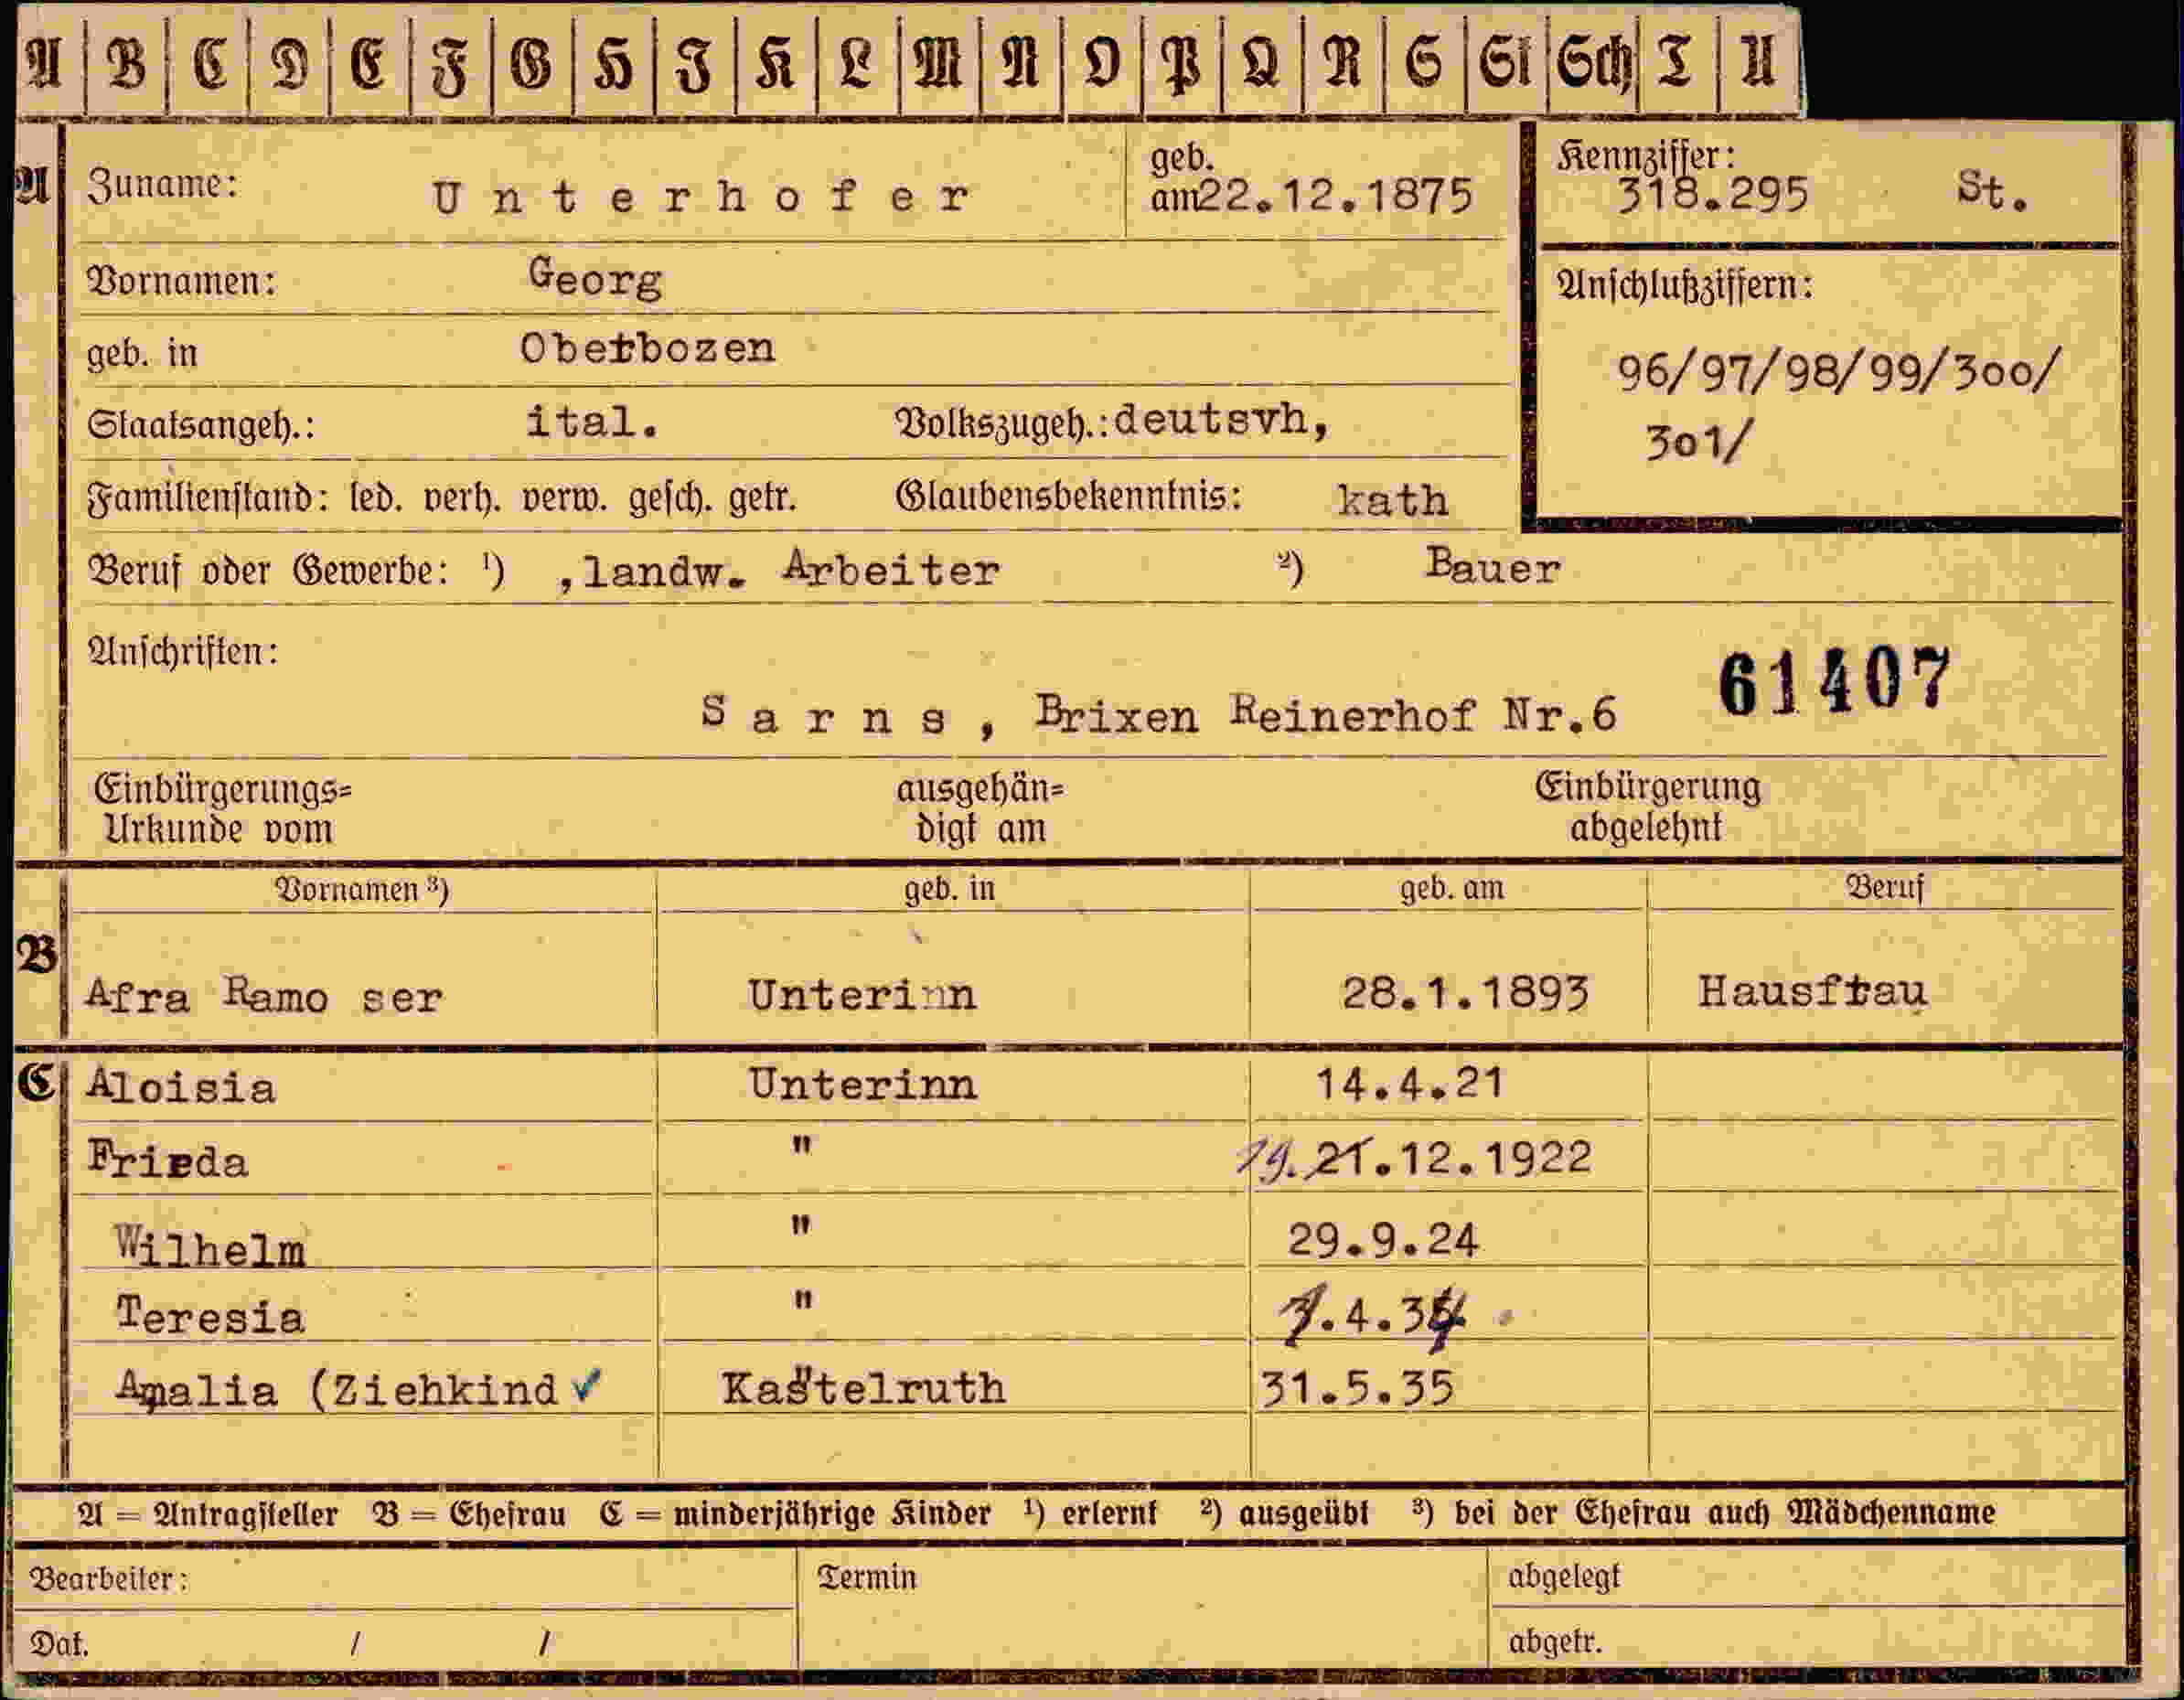 A B C D E F G H I K L M N O P Q R S St Sch T U
A Zuname: Unterhofer geb. am 22.12.1875 Kennziffer: 318.295 St.
Vornamen: Georg
Anschlußziffern:
geb. in Oberbozen
96/97/98/99/300/
Staatsangeh.: ital. Volkszugeh.: deutsvh,
301/
Familienstand: led. verh. verw. gesch. getr. Glaubensbekenntnis: kath
Beruf oder Gewerbe: ¹) ,landw. Arbeiter ²) Bauer
Anschriften:
61407
Sarns, Brixen Reinerhof Nr.6
Einbürgerungs= ausgehän= Einbürgerung
Urkunde vom digt am abgelehnt
Vornamen ³) geb. in geb. am Beruf
B
Afra Ramo ser Unterinn 28.1.1893 Hausfrau
C Aloisia Unterinn 14.4.21
Frieda " 19. 21.12.1922
Wilhelm " 29.9.24
Teresia " .4.34
Amalia (Ziehkind ✓ Kastelruth " 31.5.35
A = Antragsteller B = Ehefrau C = minderjährige Kinder ¹) erlernt ²) ausgeübt ³) bei der Ehefrau auch Mädchenname
Bearbeiter: Termin abgelegt
Dat. / / abgetr.